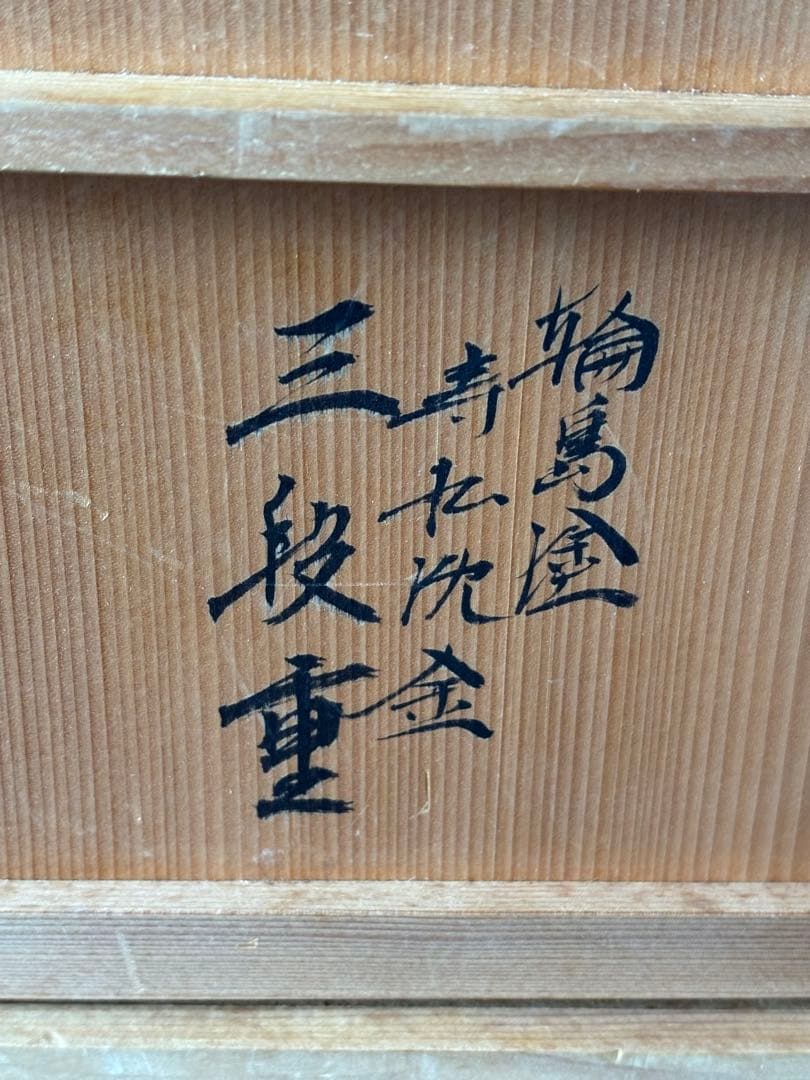 輪島塗
寿松沈金
三段重